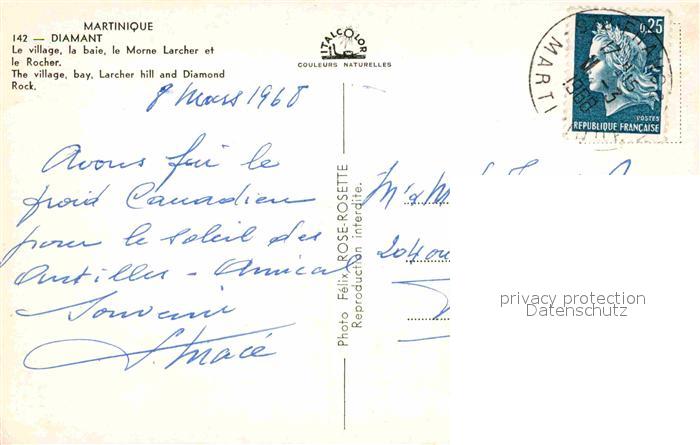 MARTINIQUE
142 — DIAMANT
Le village, la baie, le Morne Larcher et
le Rocher.
The village, bay, Larcher hill and Diamond
Rock.
ITALCOLOR
COULEURS NATURELLES
0,25
POSTES
REPUBLIQUE FRANÇAISE
MARTI
1968
8 Mars 1968
Avons fui le
froid Canadien
pour le soleil des
Antilles - Amical
Souvenir
S. Macé
Photo Félix ROSE-ROSETTE
Reproduction interdite.
204
privacy protection
Datenschutz